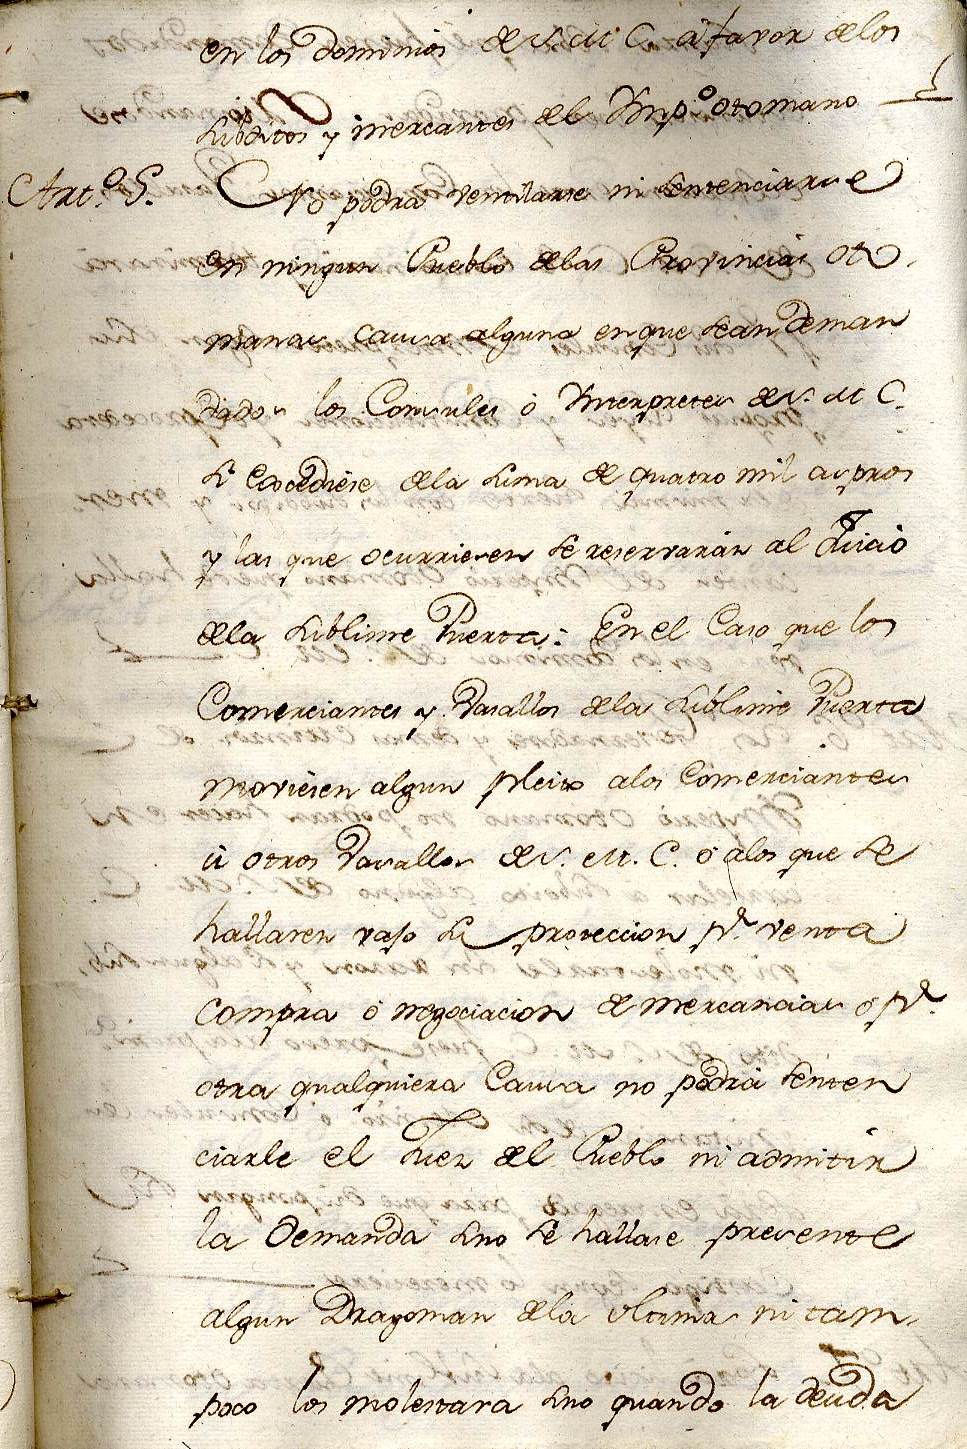 en los dominios de S. M. C. a favor de los
subditos y mercantes del Ymp.º Otomano
Art.º 5. No podra ventilarse ni sentenciarse
en ningun Pueblo delas Provincias Oto-
manas causa alguna en que sean deman
dados los Consules ó Ynterpretes de S. M. C.
si excediese dela suma de quatro mil aspros
y las que ocurriesen se reservarán al Juicio
dela Sublime Puerta: En el Caso que los
Comerciantes y Vasallos dela Sublime Puerta
moviesen algun pleito alos Comerciantes
ú otros Vasallos de S. M. C. ó alos que se
hallaren vajo su proteccion pr. venta
compra ó negociacion de mercancias ó pr.
otra qualquiera Causa no podrá senten
ciarle el Juez del Pueblo ni admitir
la Demanda sino se hallase presente
algun Dragoman dela ultima ni tam-
poco los molestara sino quando la deuda